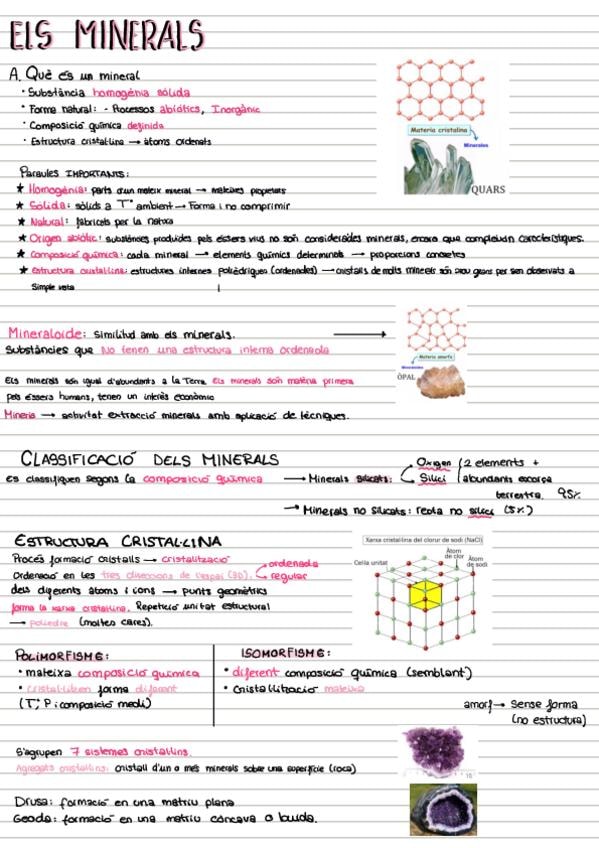 ElS MINERALS
A. Què és un mineral
· Substància homogènia sòlida
· Forma natural: - Processos abiòtics, Inorgànic
· Composició química definida
· Estructura cristal·lina → àtoms ordenats
Materia cristalina
Minerales
QUARS
Paraules IMPORTANTS:
★ Homogènia: parts d'un mateix mineral → mateixes propietats
★ Sòlida: sòlids a Tª ambient → Forma i no comprimir
★ Natural: fabricats per la natura
★ Origen abiòtic: substàncies produïdes pels éssers vius no són considerades minerals, encara que compleixin característiques.
★ Composició química: cada mineral → elements químics determinats → proporcions concretes
★ Estructura cristal·lina: estructures internes polièdriques (ordenades) → cristalls de molts minerals són prou grans per ser observats a
simple vista
Mineraloide: similitud amb els minerals. →
Substàncies que No tenen una estructura interna ordenada
Materia amorfa
Mineraloides
ÒPAL
Els minerals són igual d'abundants a la Terra. Els minerals són matèria primera
pels éssers humans, tenen un interès econòmic
Mineria → activitat extracció minerals amb aplicació de tècniques.
CLASSIFICACIÓ DELS MINERALS
es classifiquen segons la composició química → Minerals silicats: Oxigen (2 elements +
Silici abundants escorça
terrestre. 95%
→ Minerals no silicats: resta no silici (5%)
ESTRUCTURA CRISTAL·LINA
Procés formació cristalls → cristal·lització
Ordenació en les tres direccions de l'espai (3D). ordenada
regular
dels diferents àtoms i ions → punts geomètrics
forma la xarxa cristal·lina. Repetició unitat estructural
→ poliedre (moltes cares).
Xarxa cristal·lina del clorur de sodi (NaCl)
Cel·la unitat
Àtom de clor
Àtom de sodi
POLIMORFISME:
· mateixa composició química
· cristal·litzen forma diferent
(T, P i composició medi)
ISOMORFISME:
· diferent composició química (semblant)
· Cristal·lització mateixa
amorf → Sense forma
(no estructura)
S'agrupen 7 sistemes cristal·lins.
Agregats cristal·lins: cristall d'un o més minerals sobre una superfície (roca)
Drusa: formació en una matriu plana
Geoda: formació en una matriu còncava o buida.